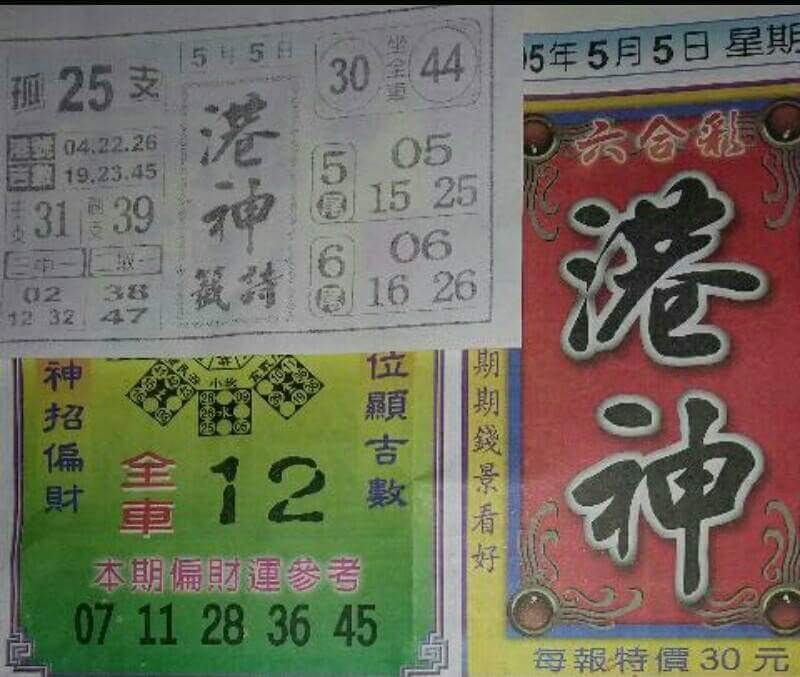 孤25支
5月5日
港號 04.22.26
吉數 19.23.45
主支31 副支39
三中一 二取一
02 38
12 32 47
港神
籤詩
30 坐全車 44
5尾 05
15 25
6尾 06
16 26
神招偏財
位顯吉數
小獎
全車 12
本期偏財運參考
07 11 28 36 45
05年5月5日 星期
六合彩
港神
期期錢景看好
每報特價30元